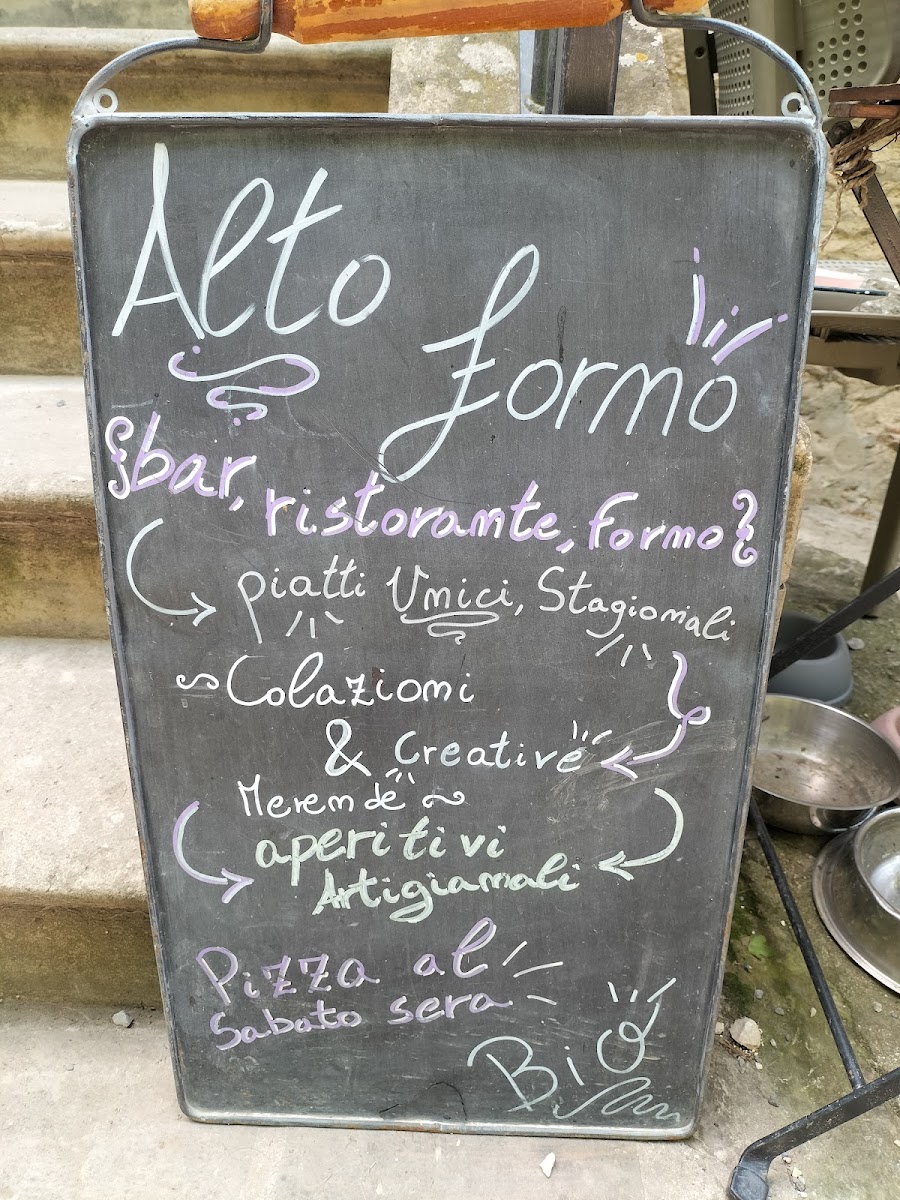 Alto
forno
bar, ristorante, forno
piatti Unici, Stagionali
Colazioni
& Creative
Merende
aperitivi
Artigianali
Pizza al
Sabato sera
Bio